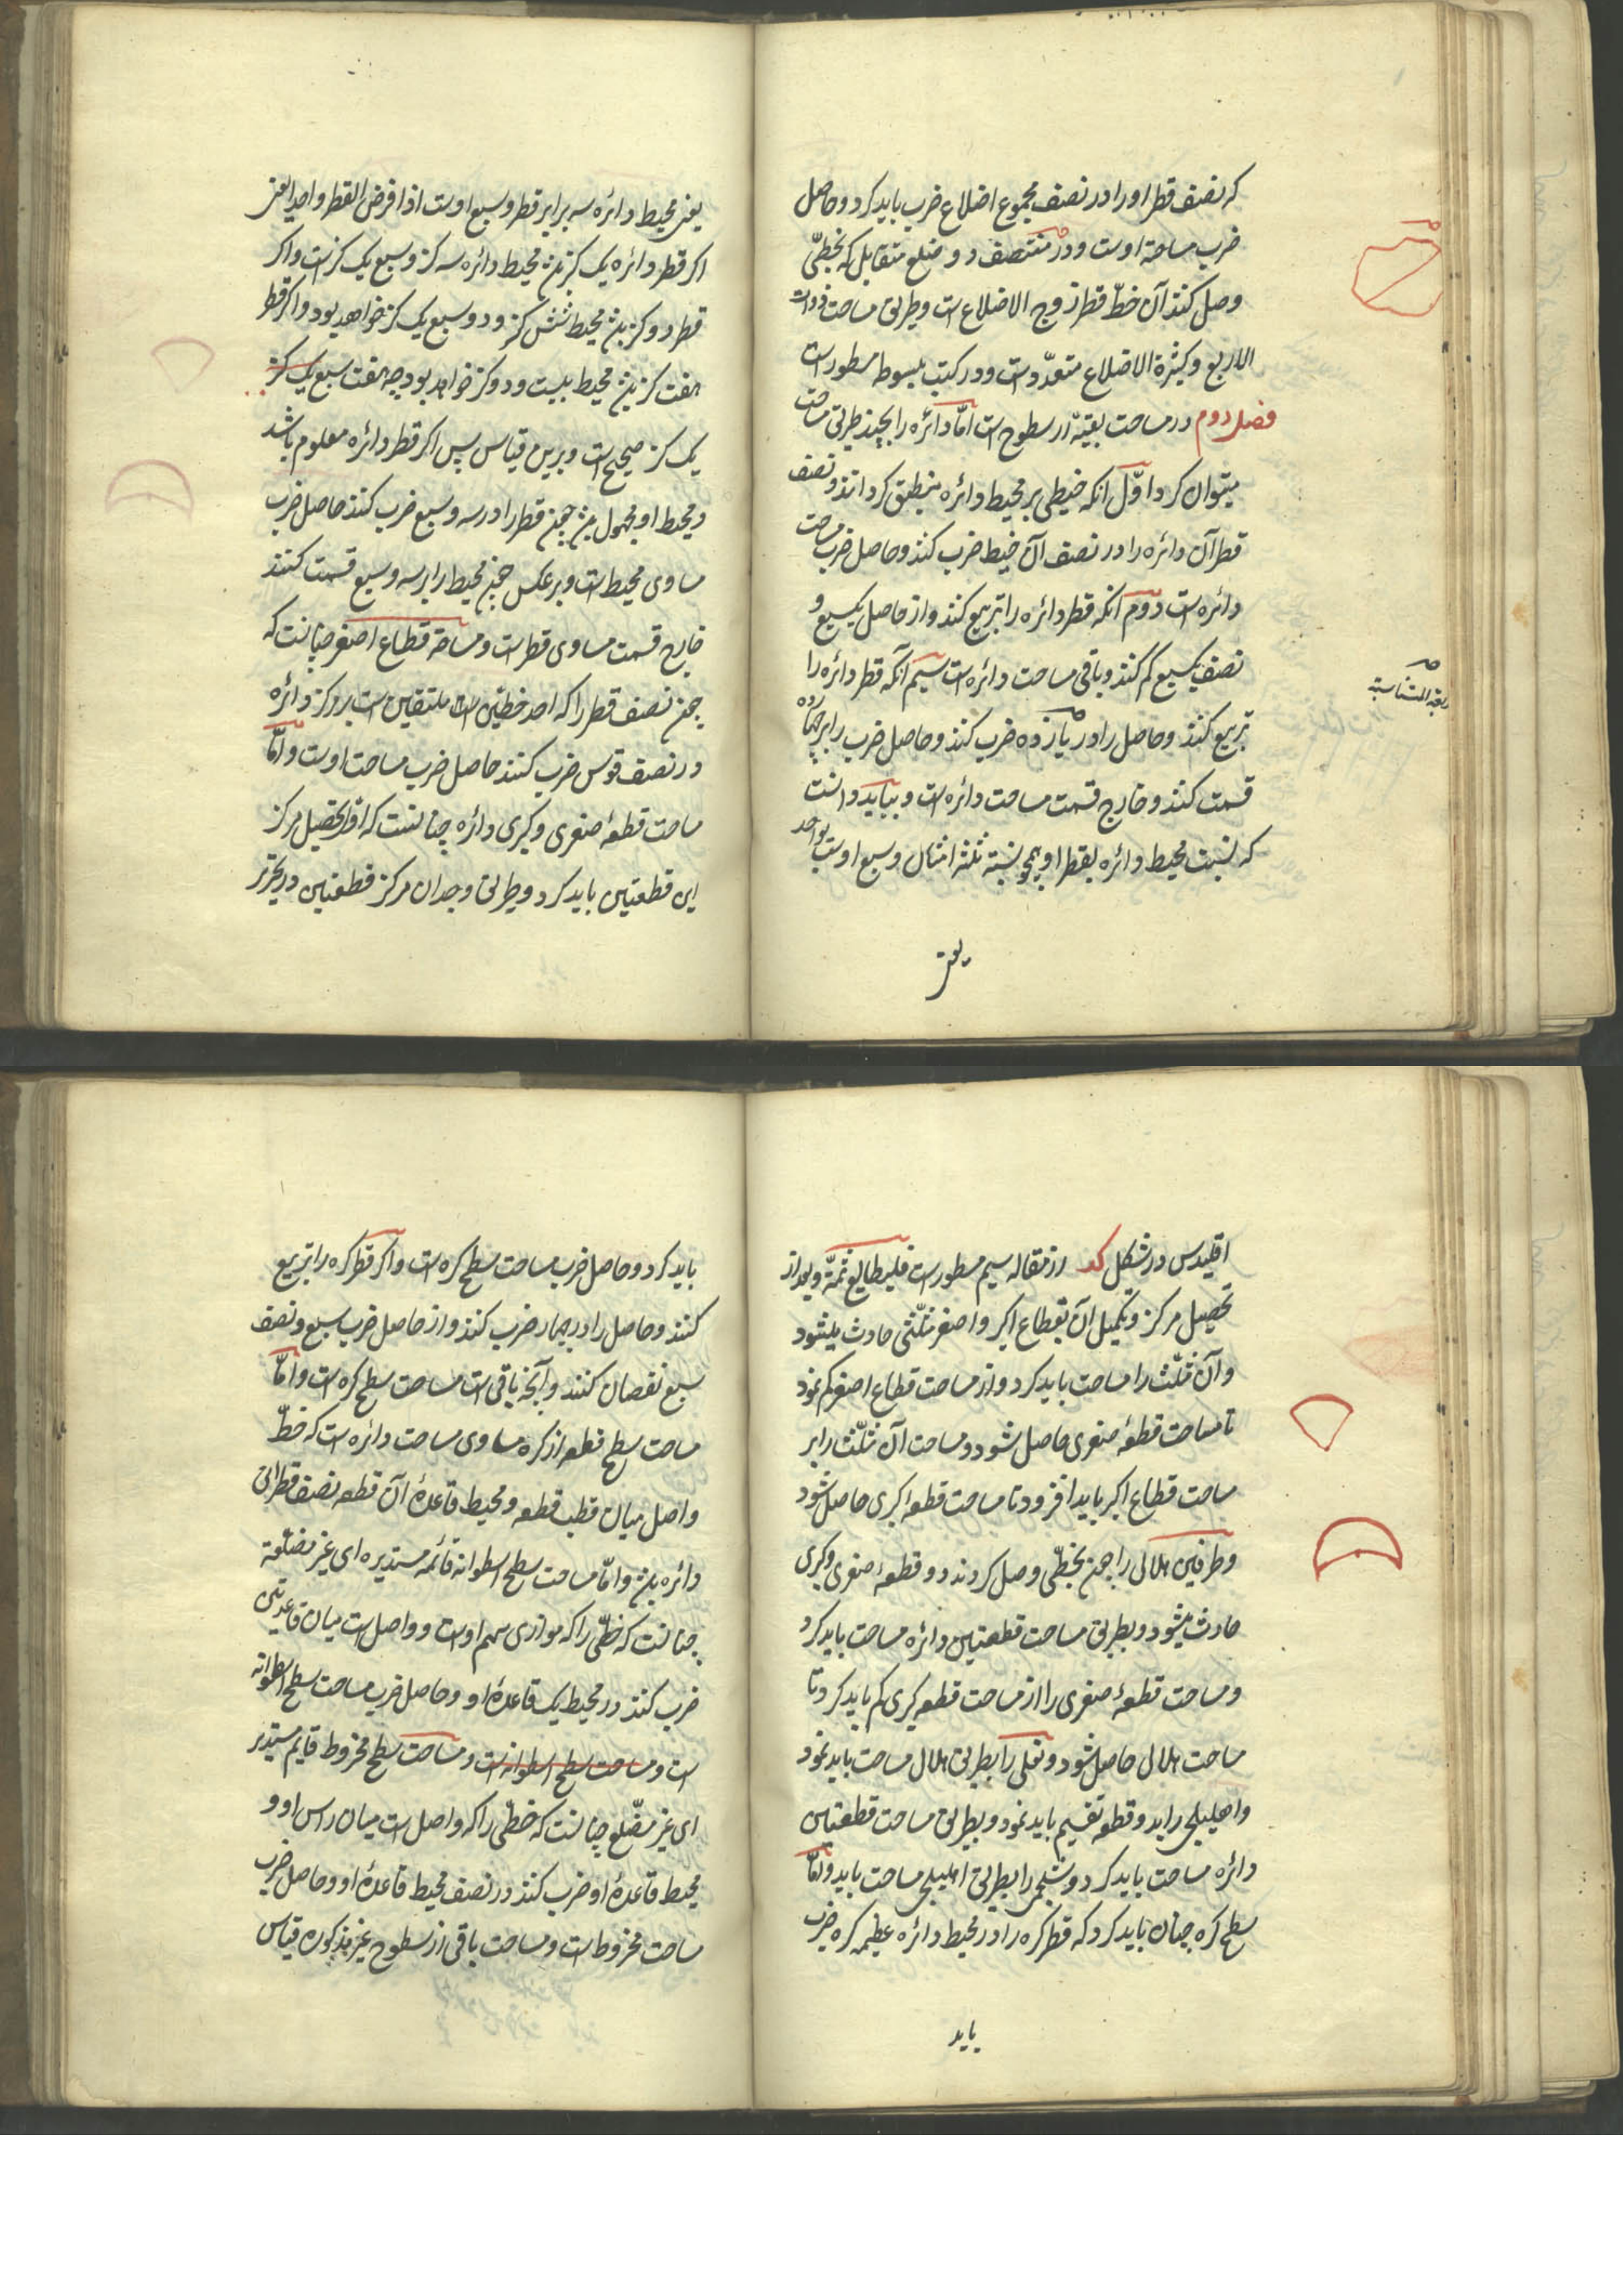 که نصف قطر او را در نصف مجموع اضلاع ضرب باید کرد و حاصل
ضرب مساحة اوست و در منتصف دو ضلع متقابل که بخطی
وصل کنند آن خط قطر زوج الاضلاع است و طریق مساحت ذوات
الاربع و کثیرة الاضلاع متعدّد است و در کتب مبسوط مسطور است
فصل دوم در مساحت بقیهٔ از سطوح است امّا دائره را بچند طریق مساحت
میتوان کرد اوّل آنکه خیطی بر محیط دائره منطبق کردانند و نصف
قطر آن دائره را در نصف آن خیط ضرب کنند و حاصل ضرب مساحت
دائره است دوم آنکه قطر دائره را تربیع کنند و از حاصل یکسبع و
نصف یکسبع کم کنند و باقی مساحت دائره است سیم آنکه قطر دائره را
تربیع کنند و حاصل را در یازده ضرب کنند و حاصل ضرب را بر چهارده
قسمت کنند و خارج قسمت مساحت دائره است و بباید دانست
که نسبت محیط دائره بقطر او همچو نسبة ثلثه امثال و سبع اوست بواحد
یعنی
یعنی محیط دائره سه برابر قطر و سبع اوست اذا فرض القطر واحد یعنی
اکر قطر دائره یک کز بود محیط دائره سه کز و سبع یک کز است و اکر
قطر دو کز بود محیط شش کز و دو سبع یک کز خواهد بود و اکر قطر
هفت کز بود محیط بیست و دو کز خواهد بود چه هفت سبع یک کز
یک کز صحیح است و برین قیاس پس اکر قطر دائره معلوم باشد
و محیط او مجهول بود چون قطر را در سه و سبع ضرب کنند حاصل ضرب
مساوی محیط است و بر عکس چون محیط را بر سه و سبع قسمت کنند
خارج قسمت مساوی قطر است و مساحة قطاع اصغر چنانست که
چون نصف قطر را که احد خطین است ملتقیین است بر مرکز دائره
در نصف قوس ضرب کنند حاصل ضرب مساحت اوست و امّا
مساحت قطعهٔ صغری و کبری دائره چنانست که اوّل تحصیل مرکز
این قطعتین باید کرد و طریق وجدان مرکز قطعتین در تحریر
اقلیدس در شکل کد از مقاله سیم مسطور است فلیطالع ثمّة و بعد از
تحصیل مرکز و تکمیل آن بقطاع اکبر و اصغر مثلّثی حادث میشود
و آن مثلّث را مساحت باید کرد و از مساحت قطاع اصغر کم نمود
تا مساحت قطعهٔ صغری حاصل شود و مساحت آن مثلّث را بر
مساحت قطاع اکبر باید افزود تا مساحت قطعه کبری حاصل شود
و طرفین هلالی را چون بخطّی وصل کردند دو قطعهٔ صغری و کبری
حادث میشود و بطریق مساحت قطعتین دائره مساحت باید کرد
و مساحت قطعهٔ صغری را از مساحت قطعه کبری کم باید کرد تا
مساحت هلالی حاصل شود و نعلی را بطریق هلال مساحت باید نمود
و اهلیلجی را بدو قطعه تقسیم باید نمود و بطریق مساحت قطعتین
دائره مساحت باید کرد و شلجمی را بطریق اهلیلجی مساحت باید و امّا
سطح کره چنان باید کرد که قطر کره را در محیط دائره عظیمه کره ضرب
باید
باید کرد و حاصل ضرب مساحت سطح کره است و اکر قطر کره را تربیع
کنند و حاصل را در چهار ضرب کنند و از حاصل ضرب سبع و نصف
سبع نقصان کنند و آنچه باقی است مساحت سطح کره است و امّا
مساحت سطح قطعه از کره مساوی مساحت دائره است که خطّ
واصل میان قطب قطعه و محیط قاعدهٔ آن قطعه نصف قطر آن
دائره بود و امّا مساحت سطح اسطوانه قائمه مستدیره ای غیر مضلّعه
چنانست که خطّی را که موازی سهم اوست و واصل است میان قاعدتین
ضرب کنند در محیط یک قاعدهٔ او و حاصل ضرب مساحت سطح اسطوانه
است و مساحت سطح اسطوانه است و مساحت سطح مخروط قایم مستدیر
ای غیر مضلّع چنانست که خطّی را که واصل است میان راس او و
محیط قاعدهٔ او ضرب کنند در نصف محیط قاعدهٔ او و حاصل ضرب
مساحت مخروط است و مساحت باقی از سطوح غیر مذکوره قیاس